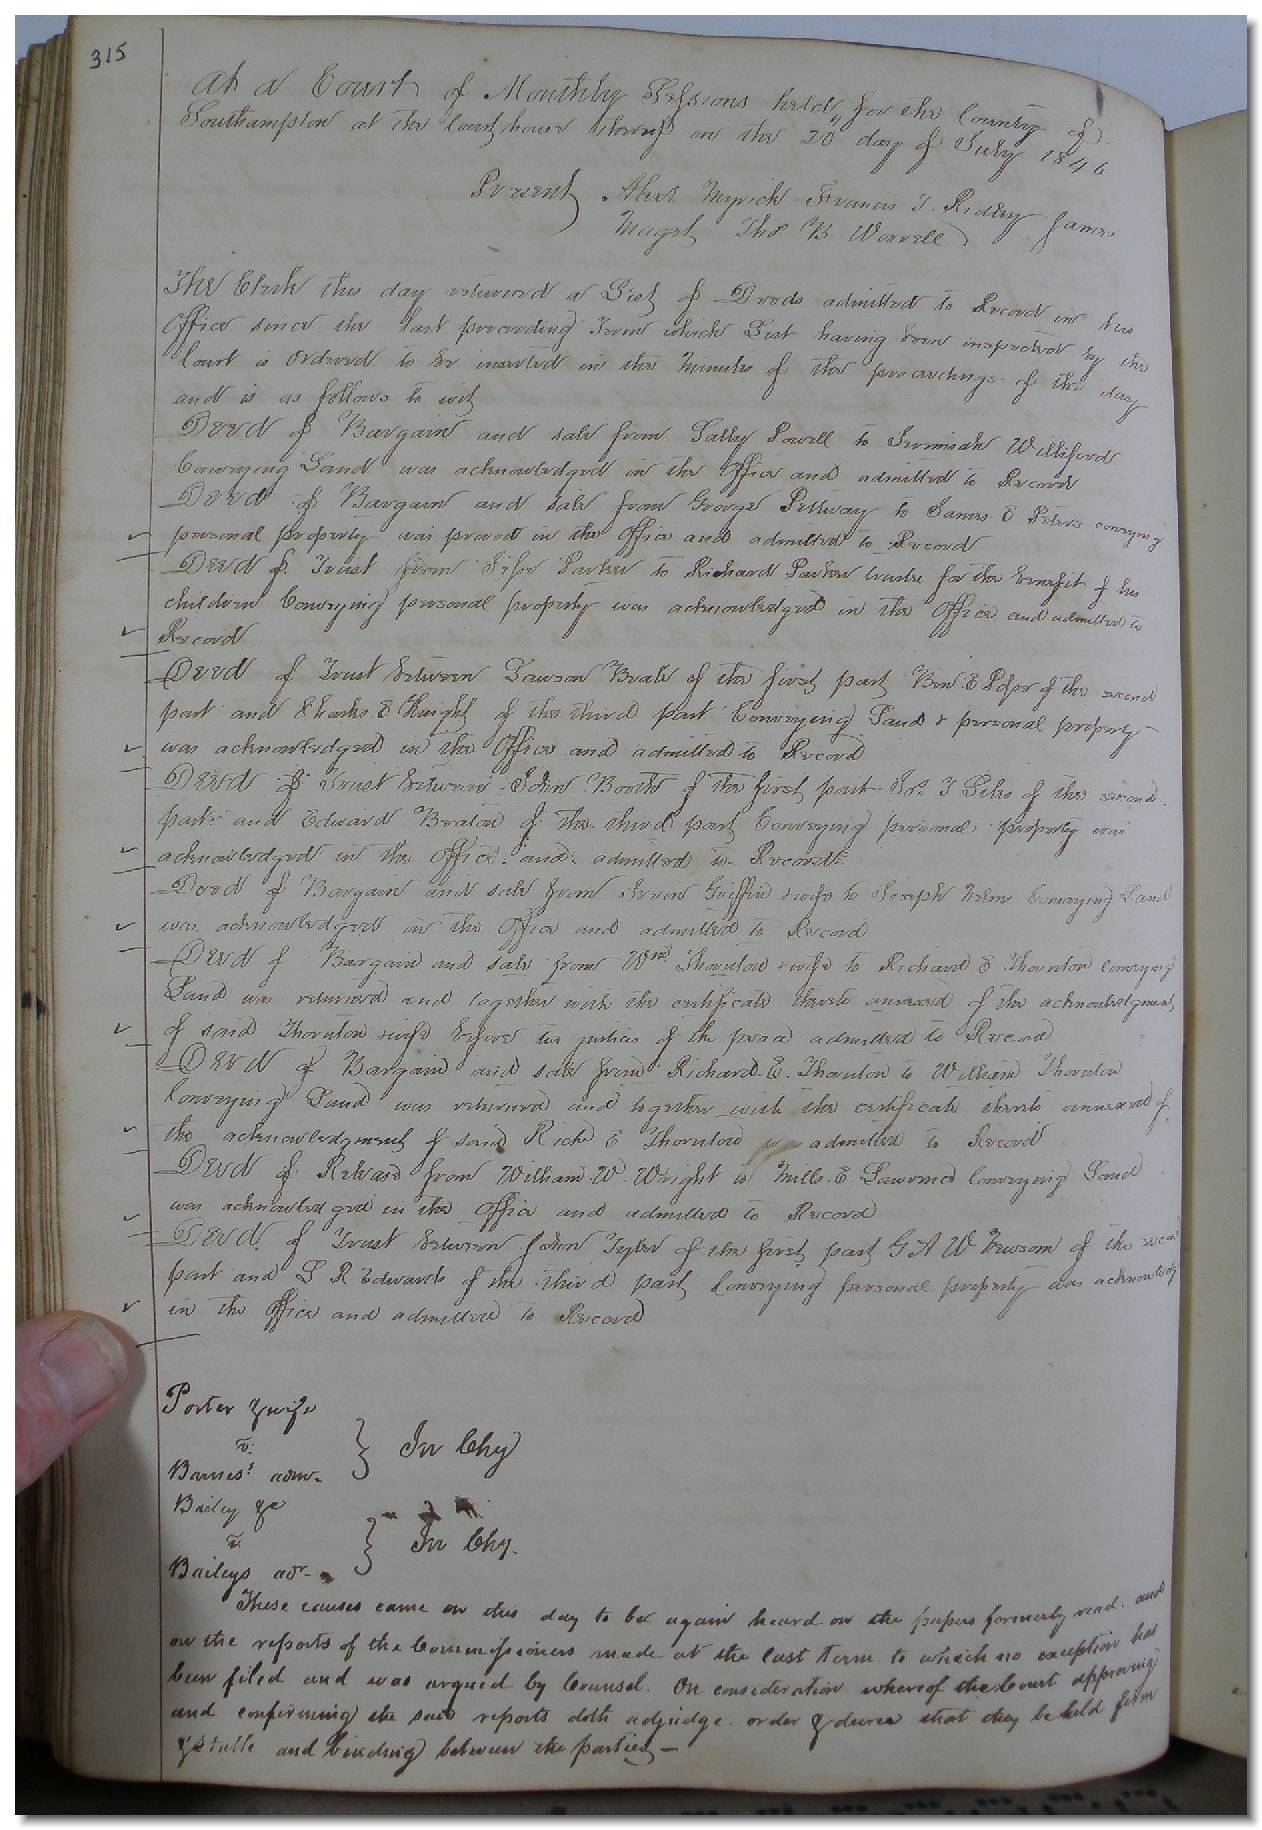 315
At a Court of Monthly Sessions held for the County of
Southampton at the Courthouse thereof on the 20 day of July 1846
Present Alexr. Myrick Francis T. Ridley James
Maget Thos B Worrell
The Clerk this day returned a List of Deeds admitted to Record in his
Office since the last preceeding Term which List having been inspected by the
Court is Ordered to be inserted in the Minutes of the proceedings of the day
and is as follows to wit
Deed of Bargain and sale from Sally Powell to Jeremiah Williford
Conveying Land was acknowledged in the Office and admitted to Record
Deed of Bargain and sale from George Pettway to James E Peters conveying
personal property was proved in the Office and admitted to Record
Deed of Trust from Parker to Richard Parker trustee for the benefit of his
children Conveying personal property was acknowledged in the Office and admitted to
Record
Deed of Trust between Lawson Beale of the first part Ben E Pope of the second
part and Charles E Knight of the third part Conveying Land & personal property
was acknowledged in the Office and admitted to Record
Deed of Trust between John Booth of the first part T Liles of the second
part and Edward Beaton of the third part Conveying personal property was
acknowledged in the Office and admitted to Record
Deed of Bargain and sale from Griffin & wife to Joseph Conveying Land
was acknowledged in the Office and admitted to Record
Deed of Bargain and sale from Wm Thornton & wife to Richard E Thornton conveying
Land was returned and together with the certificate thereto annexed of the acknowledgment
of said Thornton & wife before two justices of the peace admitted to Record
Deed of Bargain and sale from Richard E. Thornton to William Thornton
Conveying Land was returned and together with the certificate thereto annexed of
the acknowledgment of said Richd E Thornton admitted to Record
Deed of Release from William W. Wright to Mills E Lawrence Conveying Land
was acknowledged in the Office and admitted to Record
Deed of Trust between John Tyler of the first part G A W Newsom of the
part and L R Edwards of the third part Conveying personal property was
in the Office and admitted to Record
Porter & wife
v.
Barnes' admr
In Chy
Bailey &c
v.
Baileys adr
In Chy.
These causes came on this day to be again heard on the papers formerly read and
on the reports of the Commissioners made at the last Term to which no exception has
been filed and was argued by Counsel. On consideration whereof the Court approving
and confirming the said reports doth adjudge order & decree that they be held firm
& stable and binding between the parties —